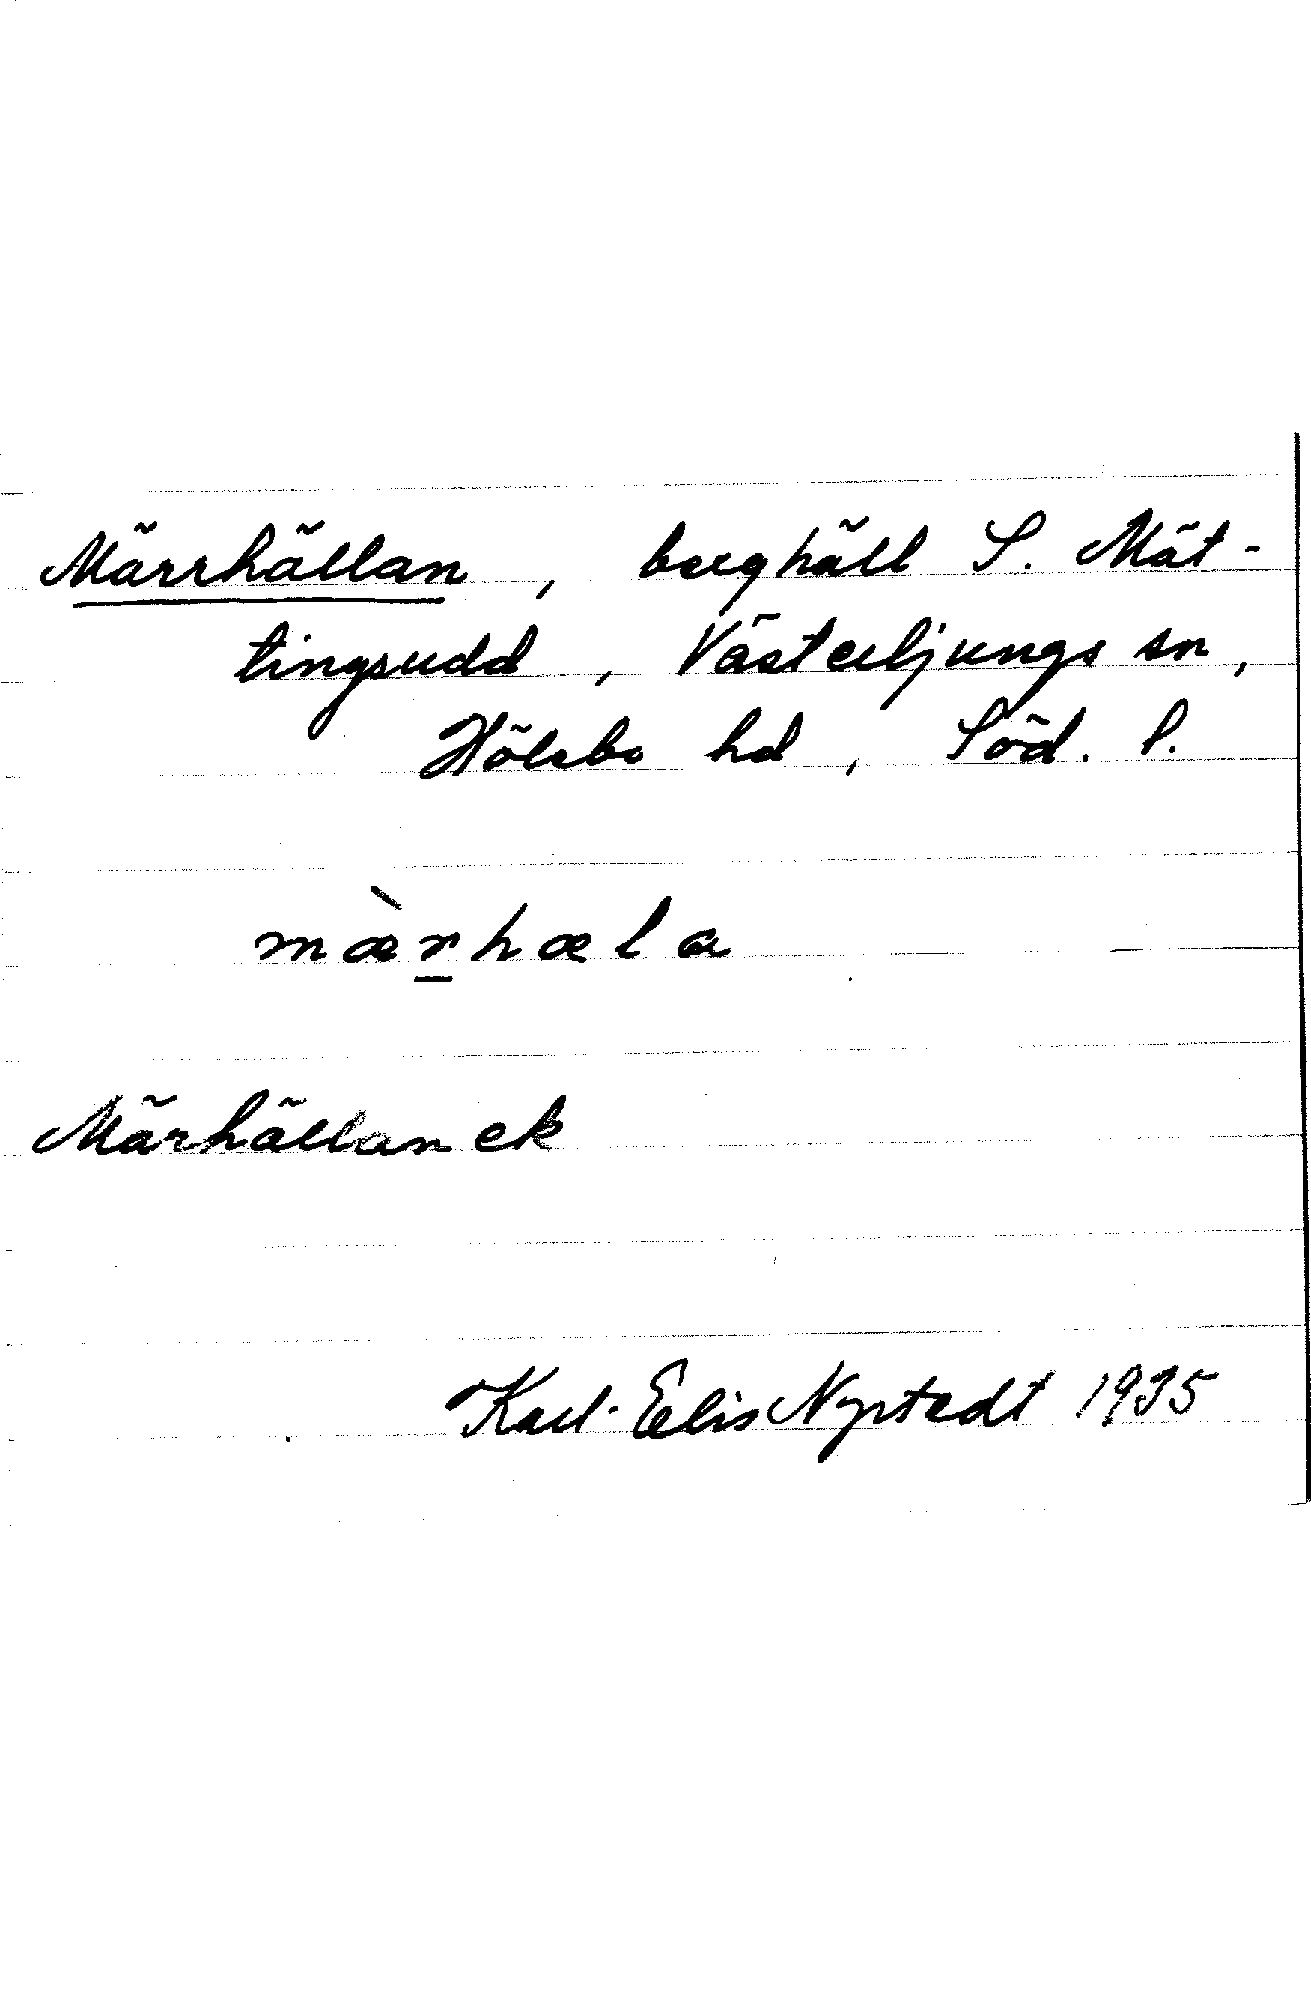 Märrhällan, berghäll S. Mät-
tingsudd, Västerljungs sn,
Hölebo hd, Söd. l.
mæ̀r̲hæla
Märhällan ek
Karl-Elis Nystedt 1935